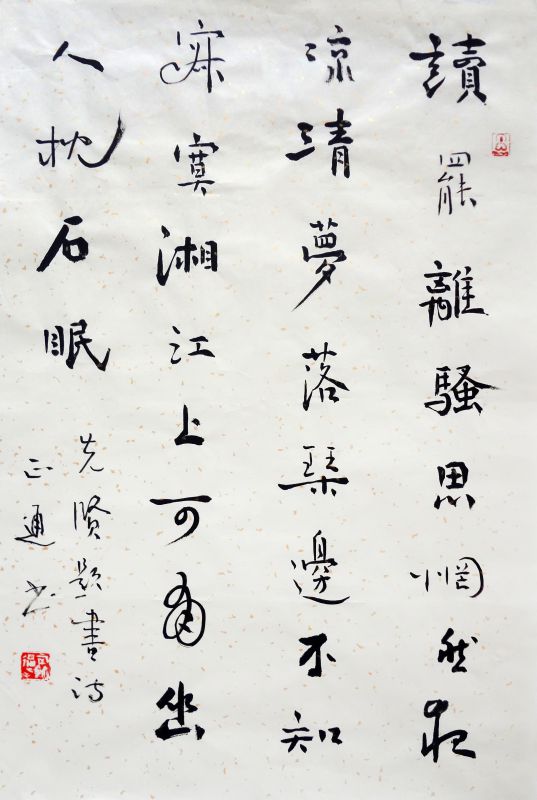 讀罷離騷思惘然夜
涼清夢落琴邊不知
寂寞湘江上可有幽
人枕石眠
先賢題畫詩
正通書